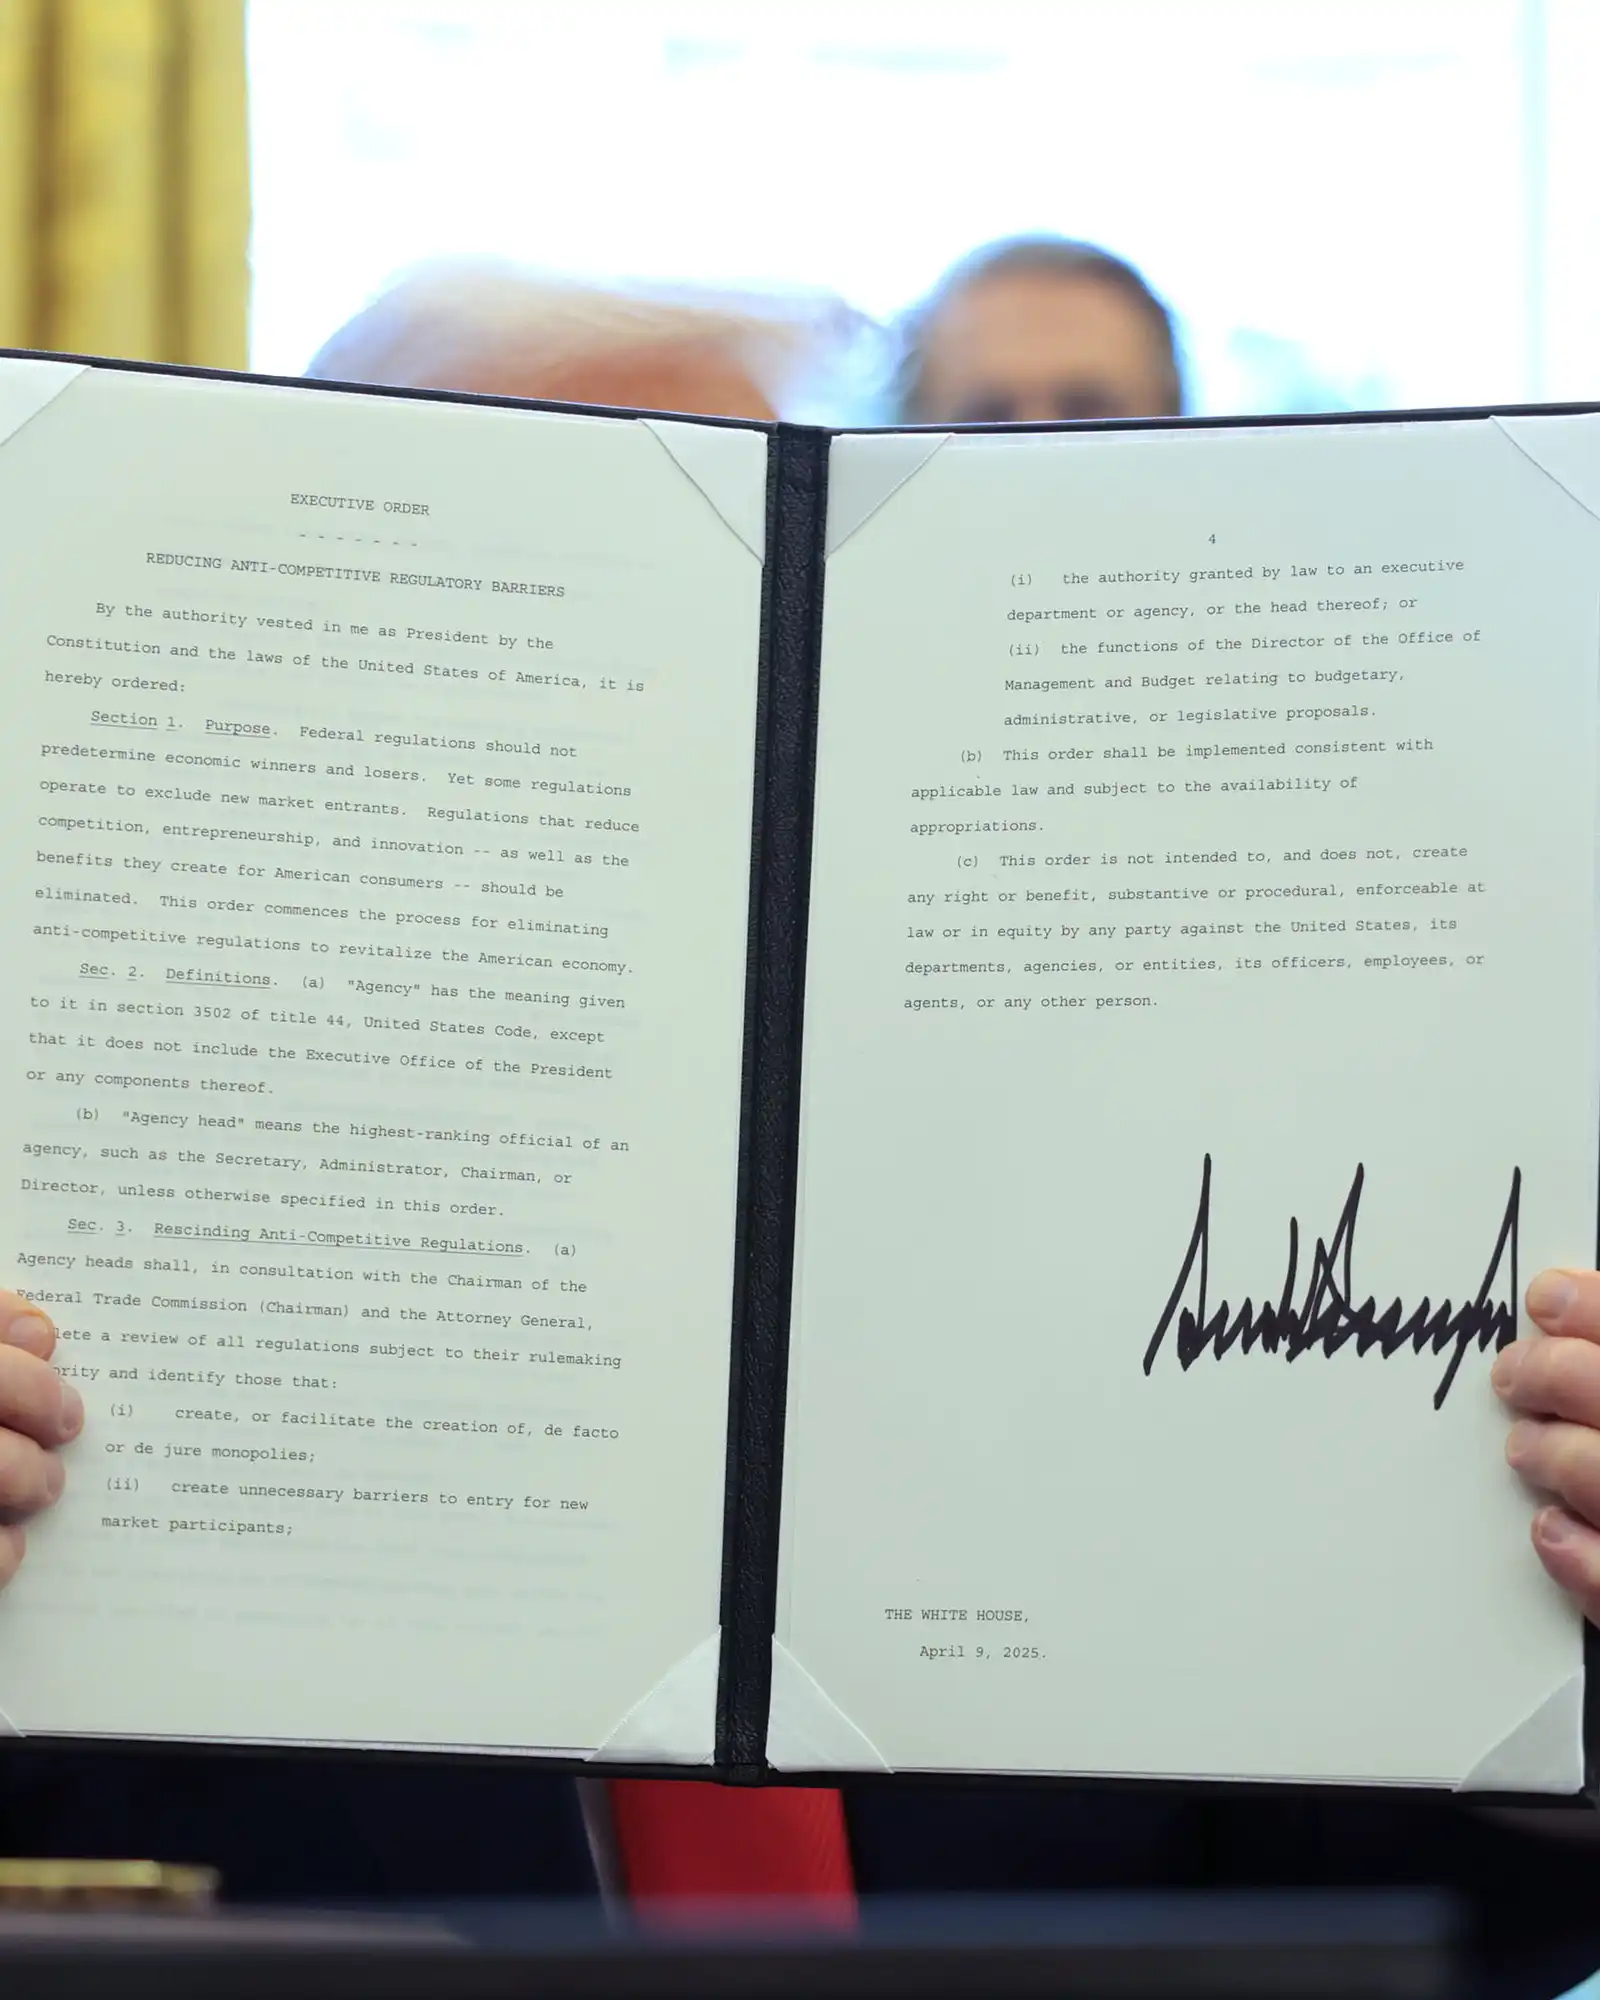 EXECUTIVE ORDER
- - - - - - -
REDUCING ANTI-COMPETITIVE REGULATORY BARRIERS
By the authority vested in me as President by the
Constitution and the laws of the United States of America, it is
hereby ordered:
Section 1. Purpose. Federal regulations should not
predetermine economic winners and losers. Yet some regulations
operate to exclude new market entrants. Regulations that reduce
competition, entrepreneurship, and innovation -- as well as the
benefits they create for American consumers -- should be
eliminated. This order commences the process for eliminating
anti-competitive regulations to revitalize the American economy.
Sec. 2. Definitions. (a) "Agency" has the meaning given
to it in section 3502 of title 44, United States Code, except
that it does not include the Executive Office of the President
or any components thereof.
(b) "Agency head" means the highest-ranking official of an
agency, such as the Secretary, Administrator, Chairman, or
Director, unless otherwise specified in this order.
Sec. 3. Rescinding Anti-Competitive Regulations. (a)
Agency heads shall, in consultation with the Chairman of the
Federal Trade Commission (Chairman) and the Attorney General,
lete a review of all regulations subject to their rulemaking
ority and identify those that:
(i) create, or facilitate the creation of, de facto
or de jure monopolies;
(ii) create unnecessary barriers to entry for new
market participants;
4
(i) the authority granted by law to an executive
department or agency, or the head thereof; or
(ii) the functions of the Director of the Office of
Management and Budget relating to budgetary,
administrative, or legislative proposals.
(b) This order shall be implemented consistent with
applicable law and subject to the availability of
appropriations.
(c) This order is not intended to, and does not, create
any right or benefit, substantive or procedural, enforceable at
law or in equity by any party against the United States, its
departments, agencies, or entities, its officers, employees, or
agents, or any other person.
THE WHITE HOUSE,
April 9, 2025.